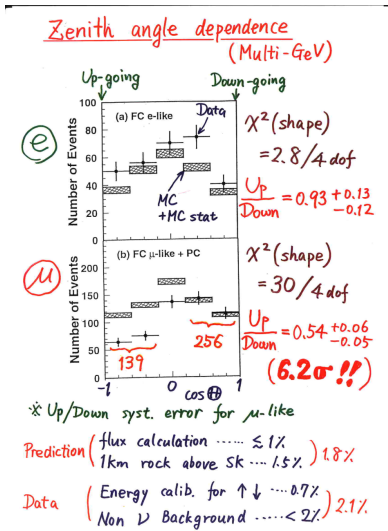 Zenith angle dependence
(Multi-GeV)
Up-going Down-going
e
(a) FC e-like
Data
MC
+MC stat
Number of Events
100
80
60
40
20
0
χ²(shape)
=2.8/4 dof
Up/Down = 0.93 +0.13 -0.12
μ
(b) FC μ-like + PC
Number of Events
200
150
100
50
0
139
256
-1 0 1
cosΘ
χ²(shape)
=30/4 dof
Up/Down = 0.54 +0.06 -0.05
(6.2σ!!)
※ Up/Down syst. error for μ-like
Prediction ( flux calculation ······ ≲ 1% ) 1.8%
1km rock above SK ···· 1.5%
Data ( Energy calib. for ↑↓ ···· 0.7% ) 2.1%
Non ν Background ····· < 2%